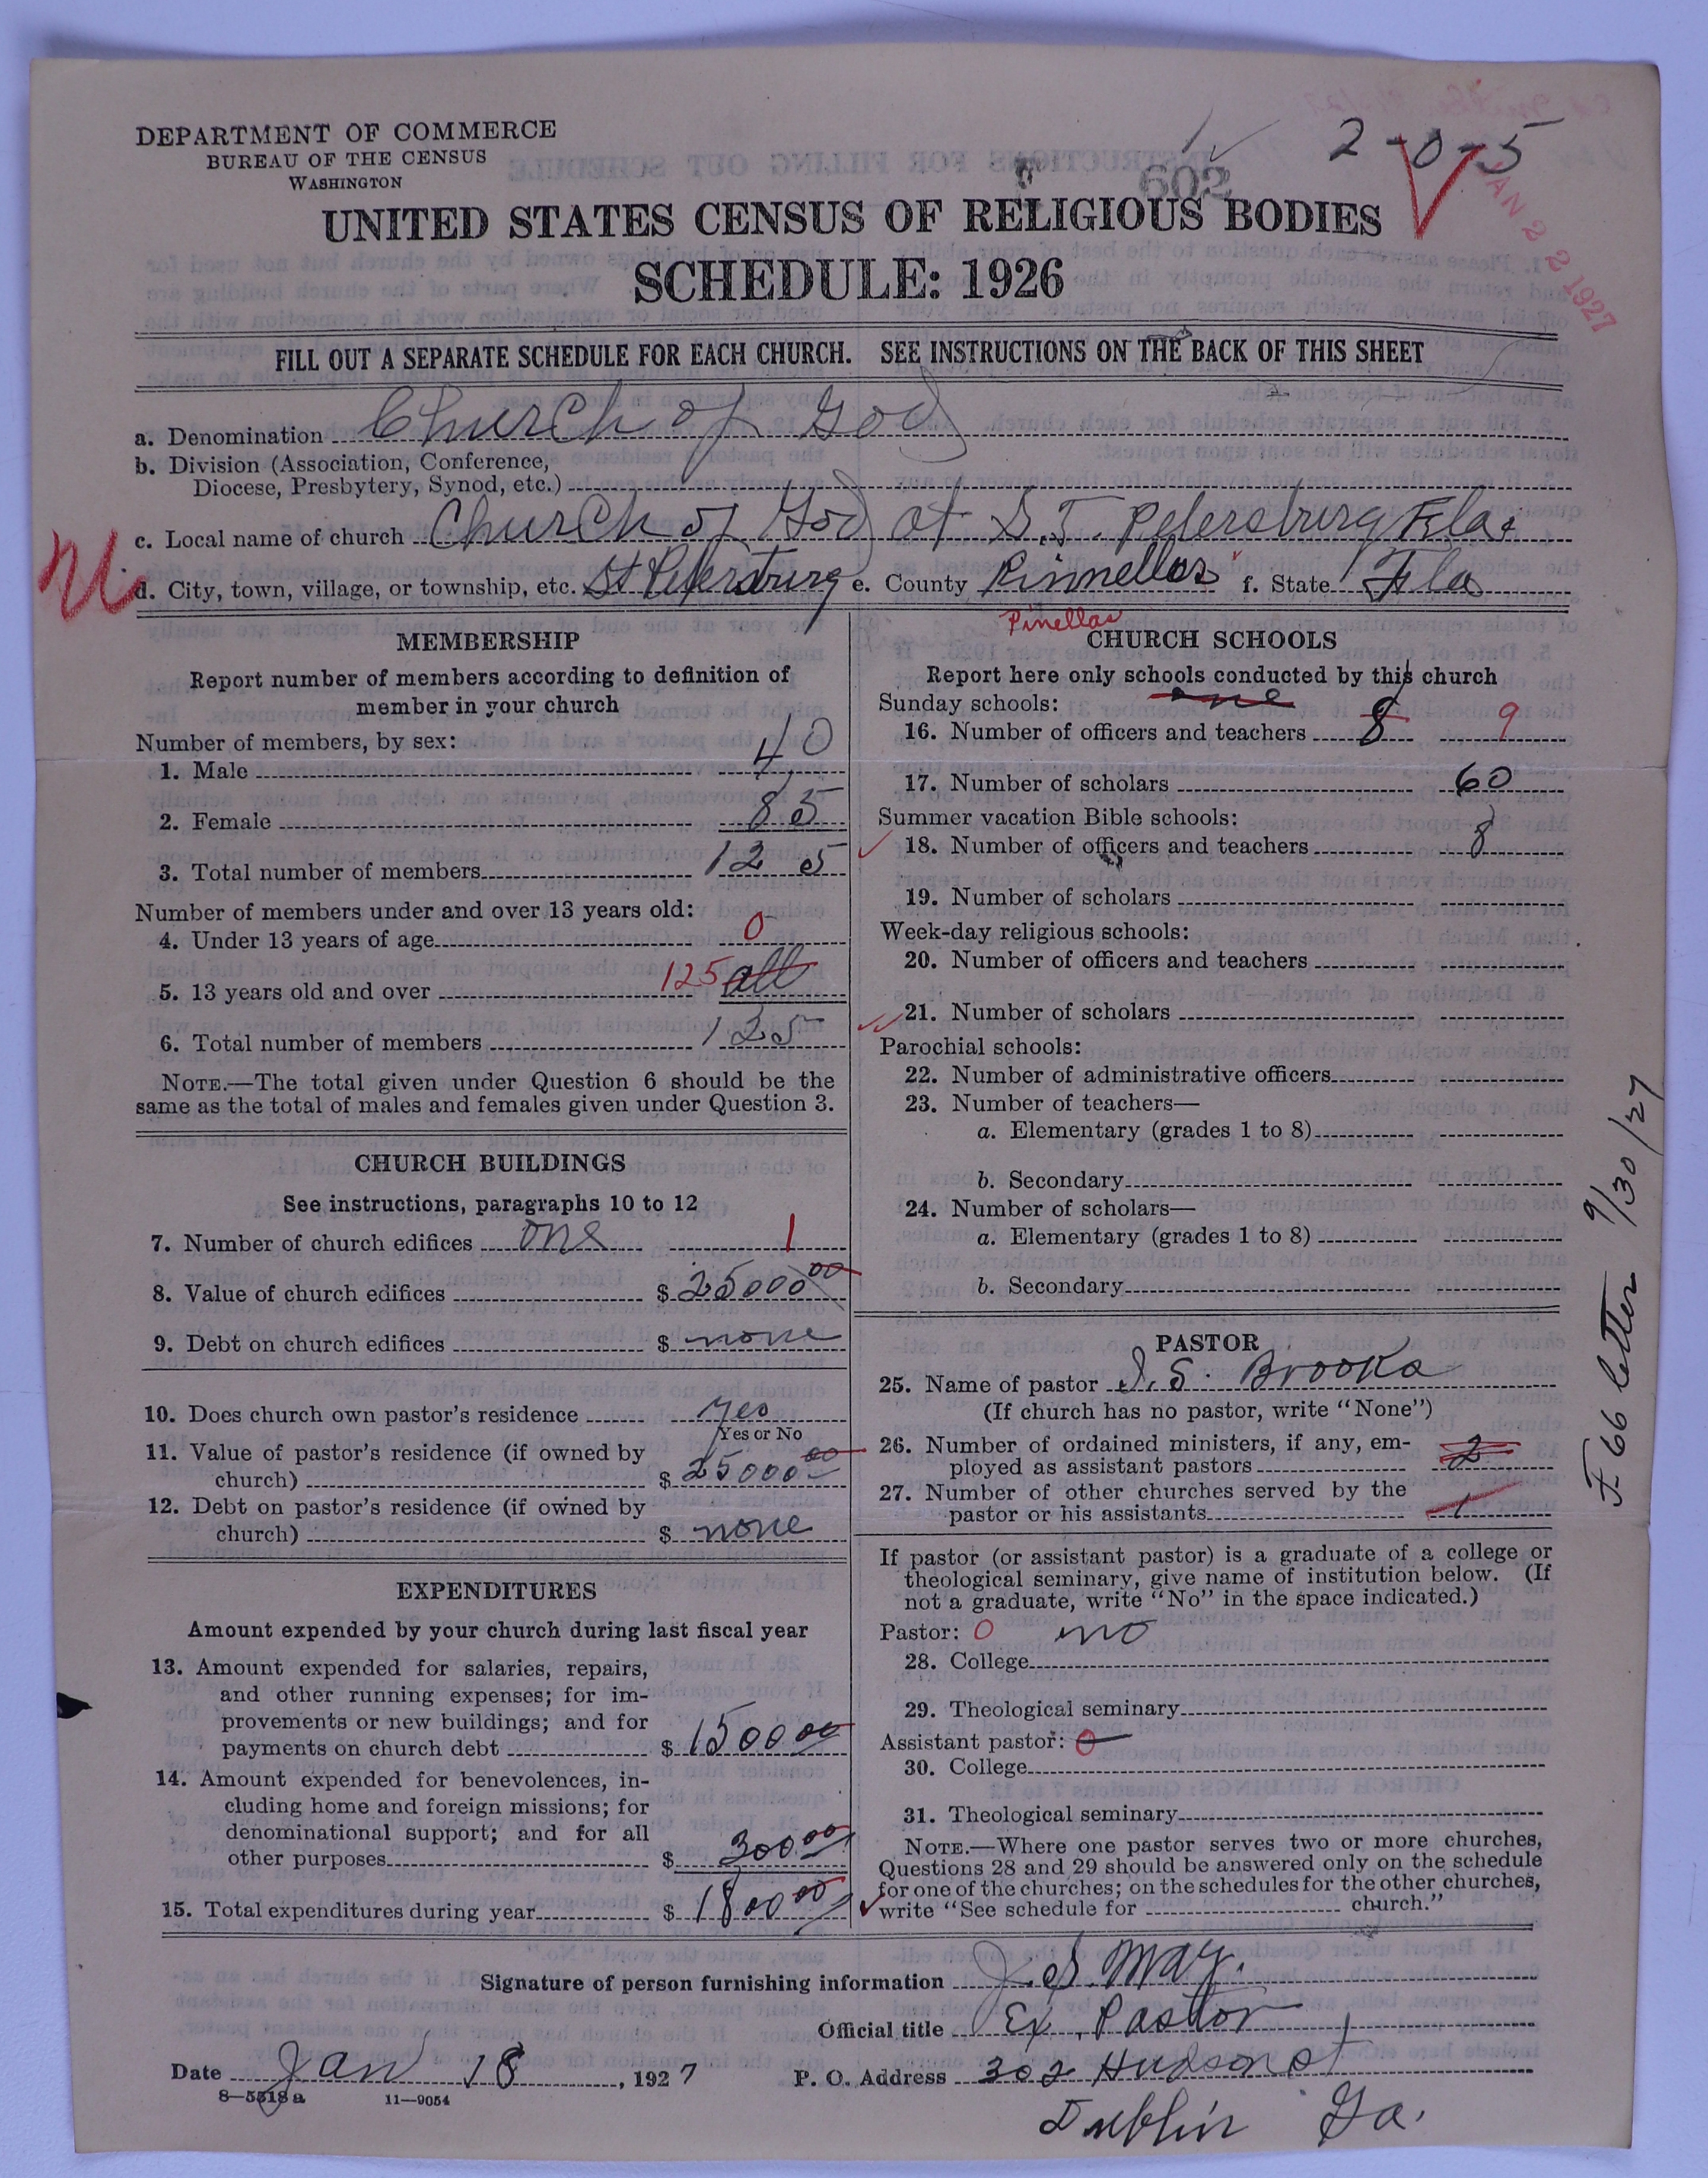 DEPARTMENT OF COMMERCE
BUREAU OF THE CENSUS
WASHINGTON
2-0-5
602
JAN 22 1927
UNITED STATES CENSUS OF RELIGIOUS BODIES
SCHEDULE: 1926
FILL OUT A SEPARATE SCHEDULE FOR EACH CHURCH. SEE INSTRUCTIONS ON THE BACK OF THIS SHEET
a. Denomination Church of God
b. Division (Association, Conference,
Diocese, Presbytery, Synod, etc.)
c. Local name of church Church of God at S.T. Petersburg Fla
d. City, town, village, or township, etc. St Petersburg e. County Pinnellas f. State Fla
Pinellas
MEMBERSHIP
Report number of members according to definition of
member in your church
Number of members, by sex:
1. Male 40
2. Female 85
3. Total number of members 125
Number of members under and over 13 years old:
4. Under 13 years of age 0
5. 13 years old and over 125 all
6. Total number of members 125
NOTE.—The total given under Question 6 should be the
same as the total of males and females given under Question 3.
CHURCH BUILDINGS
See instructions, paragraphs 10 to 12
7. Number of church edifices one 1
8. Value of church edifices $ 25000 00
9. Debt on church edifices $ none
10. Does church own pastor's residence yes
Yes or No
11. Value of pastor's residence (if owned by
church) $ 25000 00
12. Debt on pastor's residence (if owned by
church) $ none
EXPENDITURES
Amount expended by your church during last fiscal year
13. Amount expended for salaries, repairs,
and other running expenses; for im-
provements or new buildings; and for
payments on church debt $ 1500 00
14. Amount expended for benevolences, in-
cluding home and foreign missions; for
denominational support; and for all
other purposes $ 300 00
15. Total expenditures during year $ 1800 00
CHURCH SCHOOLS
Report here only schools conducted by this church
Sunday schools: one
16. Number of officers and teachers 8 9
17. Number of scholars 60
Summer vacation Bible schools:
18. Number of officers and teachers 8
19. Number of scholars
Week-day religious schools:
20. Number of officers and teachers
21. Number of scholars
Parochial schools:
22. Number of administrative officers
23. Number of teachers—
a. Elementary (grades 1 to 8)
b. Secondary
24. Number of scholars—
a. Elementary (grades 1 to 8)
b. Secondary
PASTOR
25. Name of pastor J. S. Brooks
(If church has no pastor, write "None")
26. Number of ordained ministers, if any, em-
ployed as assistant pastors 2
27. Number of other churches served by the
pastor or his assistants 1
If pastor (or assistant pastor) is a graduate of a college or
theological seminary, give name of institution below. (If
not a graduate, write "No" in the space indicated.)
Pastor: 0 no
28. College
29. Theological seminary
Assistant pastor: 0
30. College
31. Theological seminary
NOTE.—Where one pastor serves two or more churches,
Questions 28 and 29 should be answered only on the schedule
for one of the churches; on the schedules for the other churches,
write "See schedule for church."
F 66 letter 9/30/27
Signature of person furnishing information J. S. May.
Official title Ex. Pastor
Date Jan 18, 1927 P. O. Address 302 Hudson St
8—5518a 11—9054
Dublin Ga.